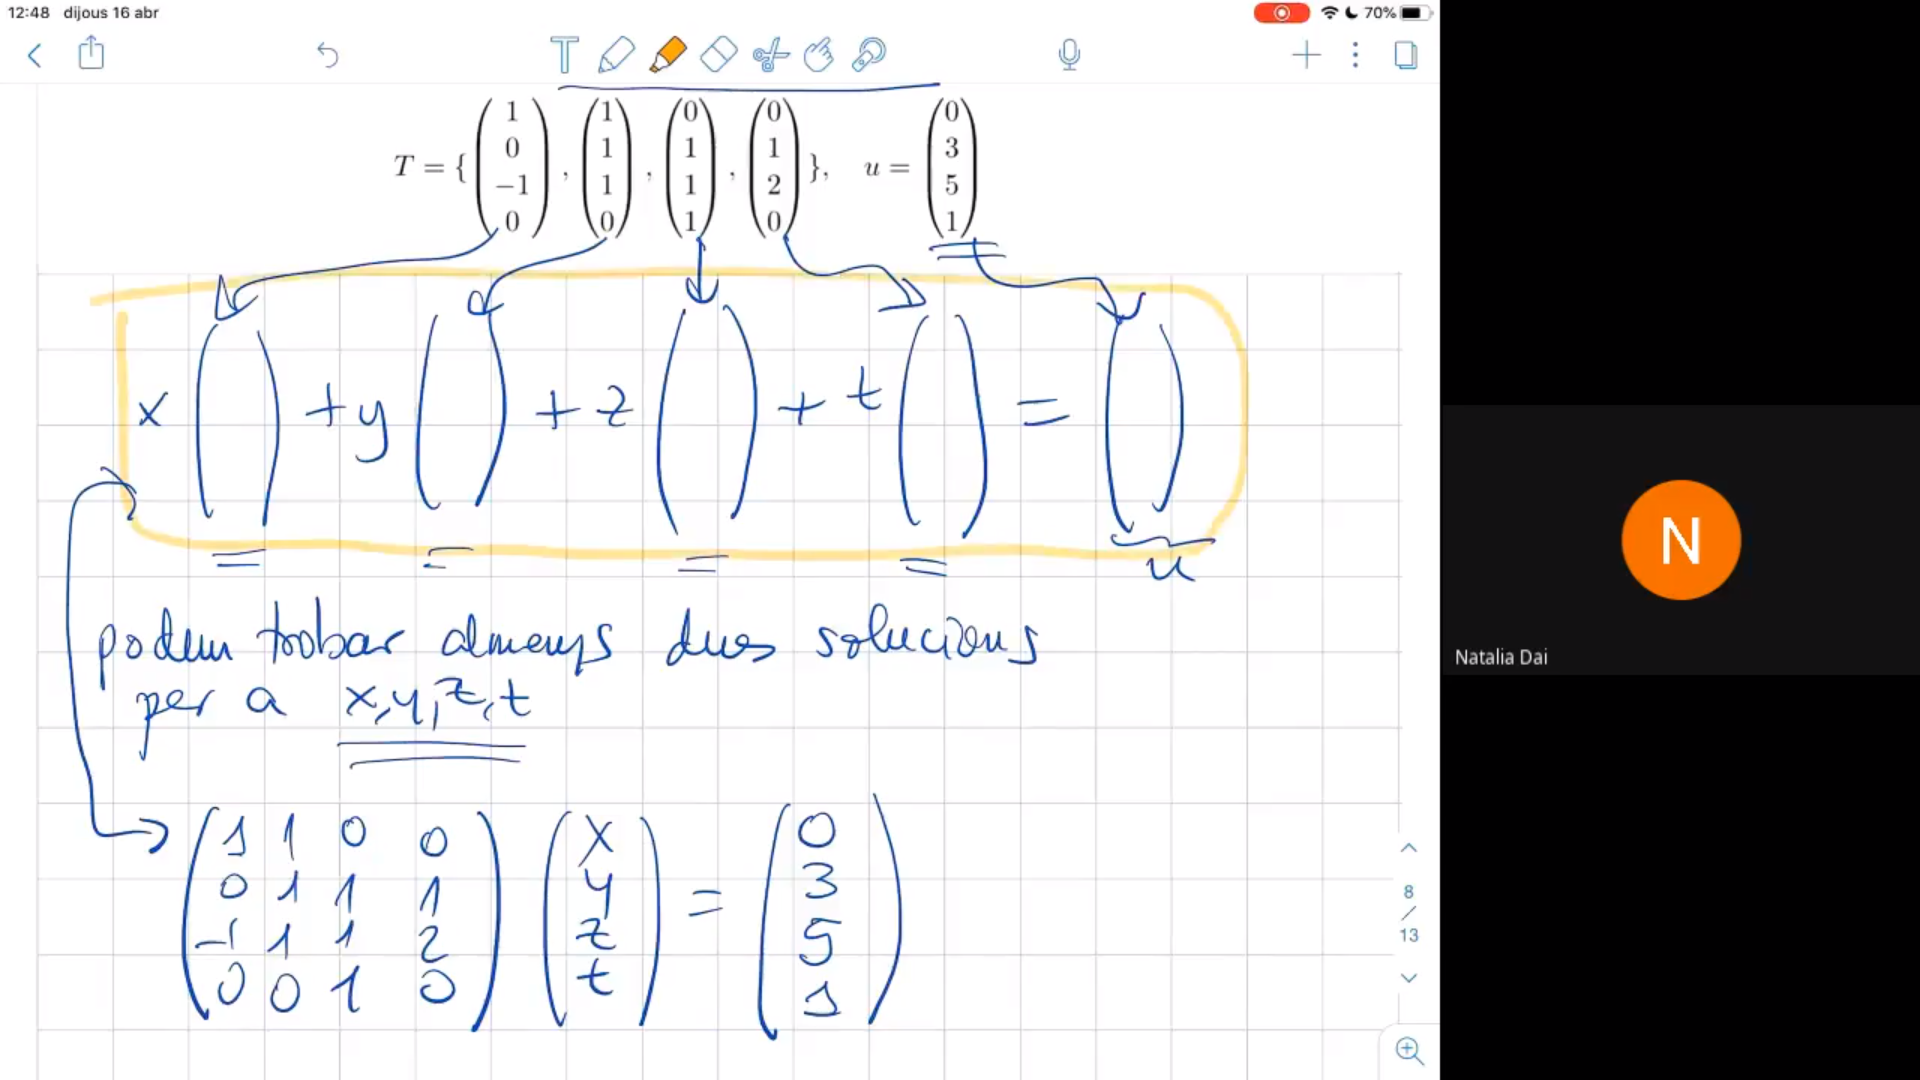 12:48 dijous 16 abr 70%
T = { \begin{pmatrix} 1 \\ 0 \\ -1 \\ 0 \end{pmatrix}, \begin{pmatrix} 1 \\ 1 \\ 1 \\ 0 \end{pmatrix}, \begin{pmatrix} 0 \\ 1 \\ 1 \\ 1 \end{pmatrix}, \begin{pmatrix} 0 \\ 1 \\ 2 \\ 0 \end{pmatrix} }, u = \begin{pmatrix} 0 \\ 3 \\ 5 \\ 1 \end{pmatrix}
x ( ) + y ( ) + z ( ) + t ( ) = ( )
u
podem trobar almenys dues solucions
per a x, y, z, t
\begin{pmatrix} 1 & 1 & 0 & 0 \\ 0 & 1 & 1 & 1 \\ -1 & 1 & 1 & 2 \\ 0 & 0 & 1 & 0 \end{pmatrix} \begin{pmatrix} x \\ y \\ z \\ t \end{pmatrix} = \begin{pmatrix} 0 \\ 3 \\ 5 \\ 1 \end{pmatrix}
8
/
13
N
Natalia Dai